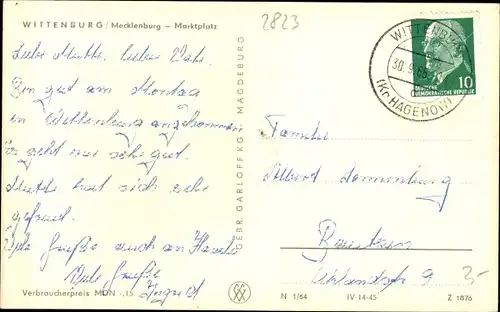 WITTENBURG / Mecklenburg – Marktplatz
2823
Liebe Mutti, lieber Vati.
Bin gut am Montag
in Wittenburg angekommen
es geht mir sehr gut.
Mutti hat sich sehr
gefreut.
Viele Grüße auch an
Viele Grüße
Ingrid
Verbraucherpreis MDN -,15
GEBR. GARLOFF KG · MAGDEBURG
WITTENBURG
30.9.
(Kr HAGENOW)
10
DEUTSCHE
DEMOKRATISCHE REPUBLIK
Familie
Albert
Bautzen
Uhlandstr 9
N 1/64 IV-14-45 Z 1876